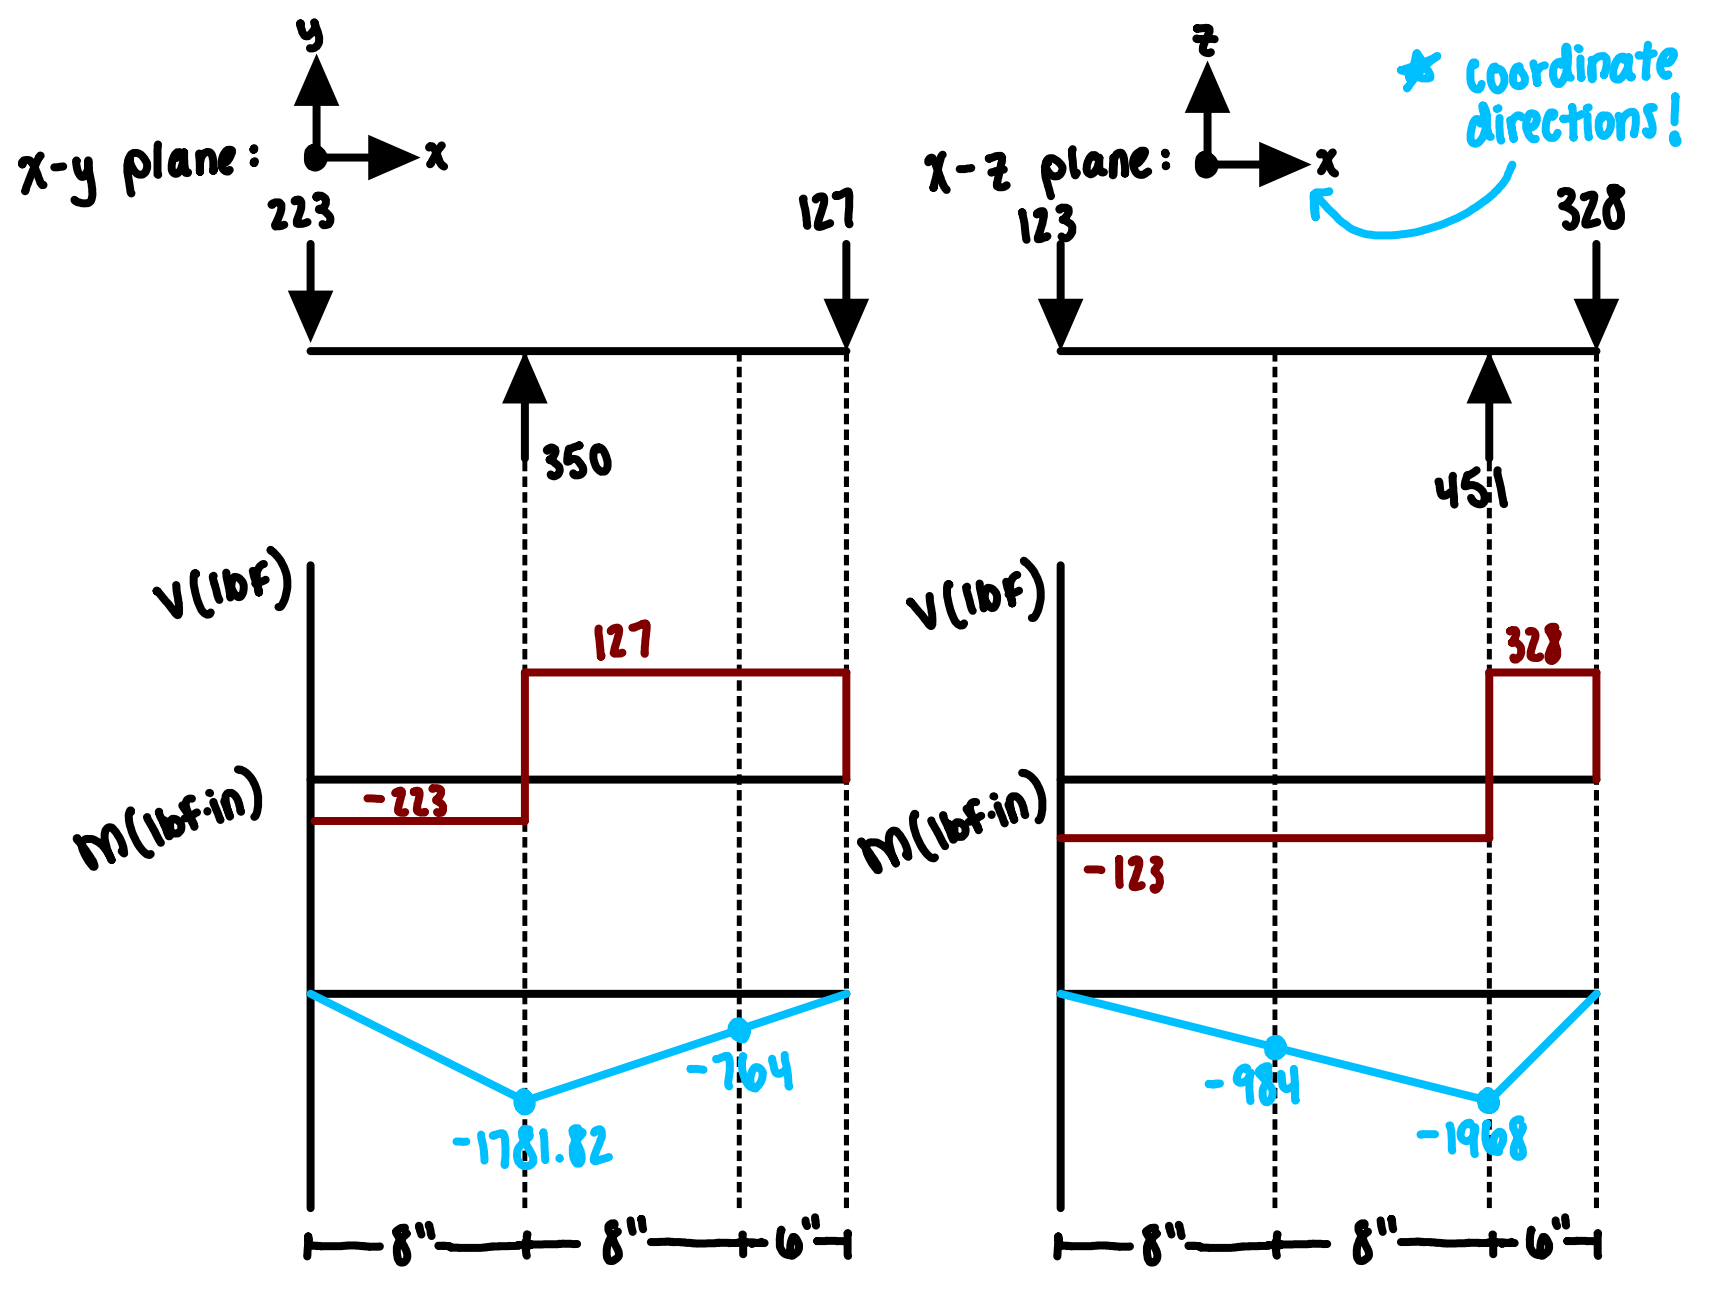 y
x-y plane:
x
223
127
350
V(lbf)
127
-223
M(lbf·in)
-764
-1781.82
8" 8" 6"
z
x-z plane:
x
★ coordinate
directions!
123
328
451
V(lbf)
328
M(lbf·in)
-123
-984
-1968
8" 8" 6"